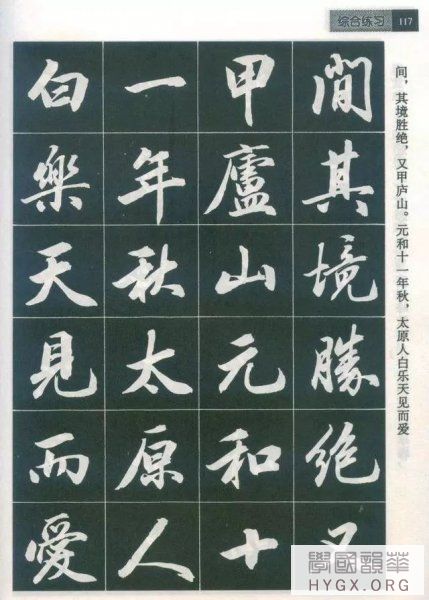 综合练习 117
间，其境胜绝，又甲庐山。元和十一年秋，太原人白乐天见而爱
間其境勝絶又
甲廬山元和十
一年秋太原人
白樂天見而愛
華韻國學
HYGX.ORG